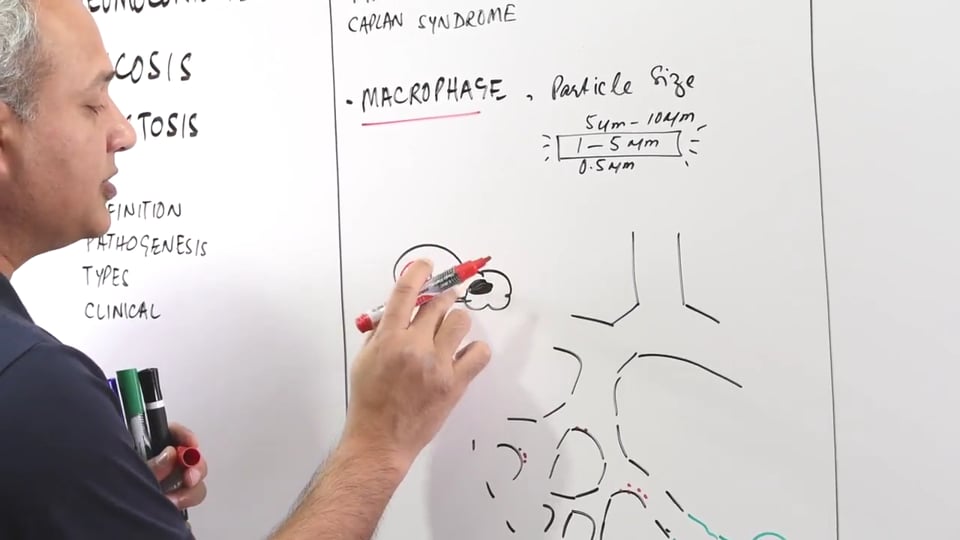 FINITION
PATHOGENESIS
TYPES
CLINICAL
CAPLAN SYNDROME
• MACROPHAGE, Particle Size
5μm - 10μm
1 - 5 μm
0.5μm